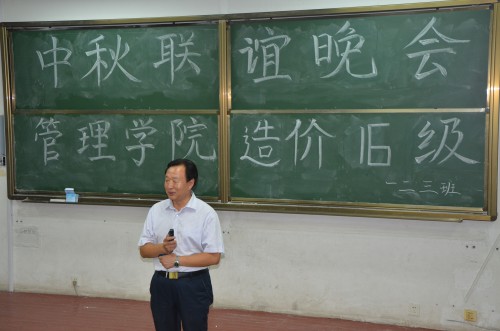 中秋联谊晚会
管理学院造价旧级
一二三班